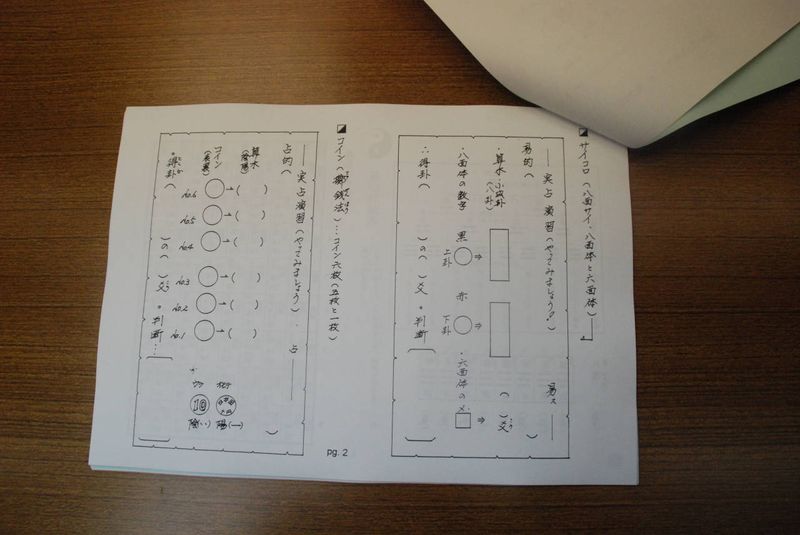 サイコロ(八面サイ・八面体と六面体)
実占演習(やってみましょう!)
易的(
・算木・小成卦
(八卦)
・八面体の数字
黒
上卦
⇒
赤
下卦
⇒
・六面体の
⇒
( )爻
得卦( )の( )爻・判断
コイン(擲銭法)…コイン六枚(五枚と一枚)
実占演習(やってみましょう)・占
占的( )
算木
(陰陽)
コイン
(表裏)
no.6 →( )
no.5 →( )
no.4 →( )
no.3 →( )
no.2 →( )
no.1 →( )
ウラ
オモテ
10
陰(--)
陽(—)
・得卦( )の( )爻・判断…
pg. 2